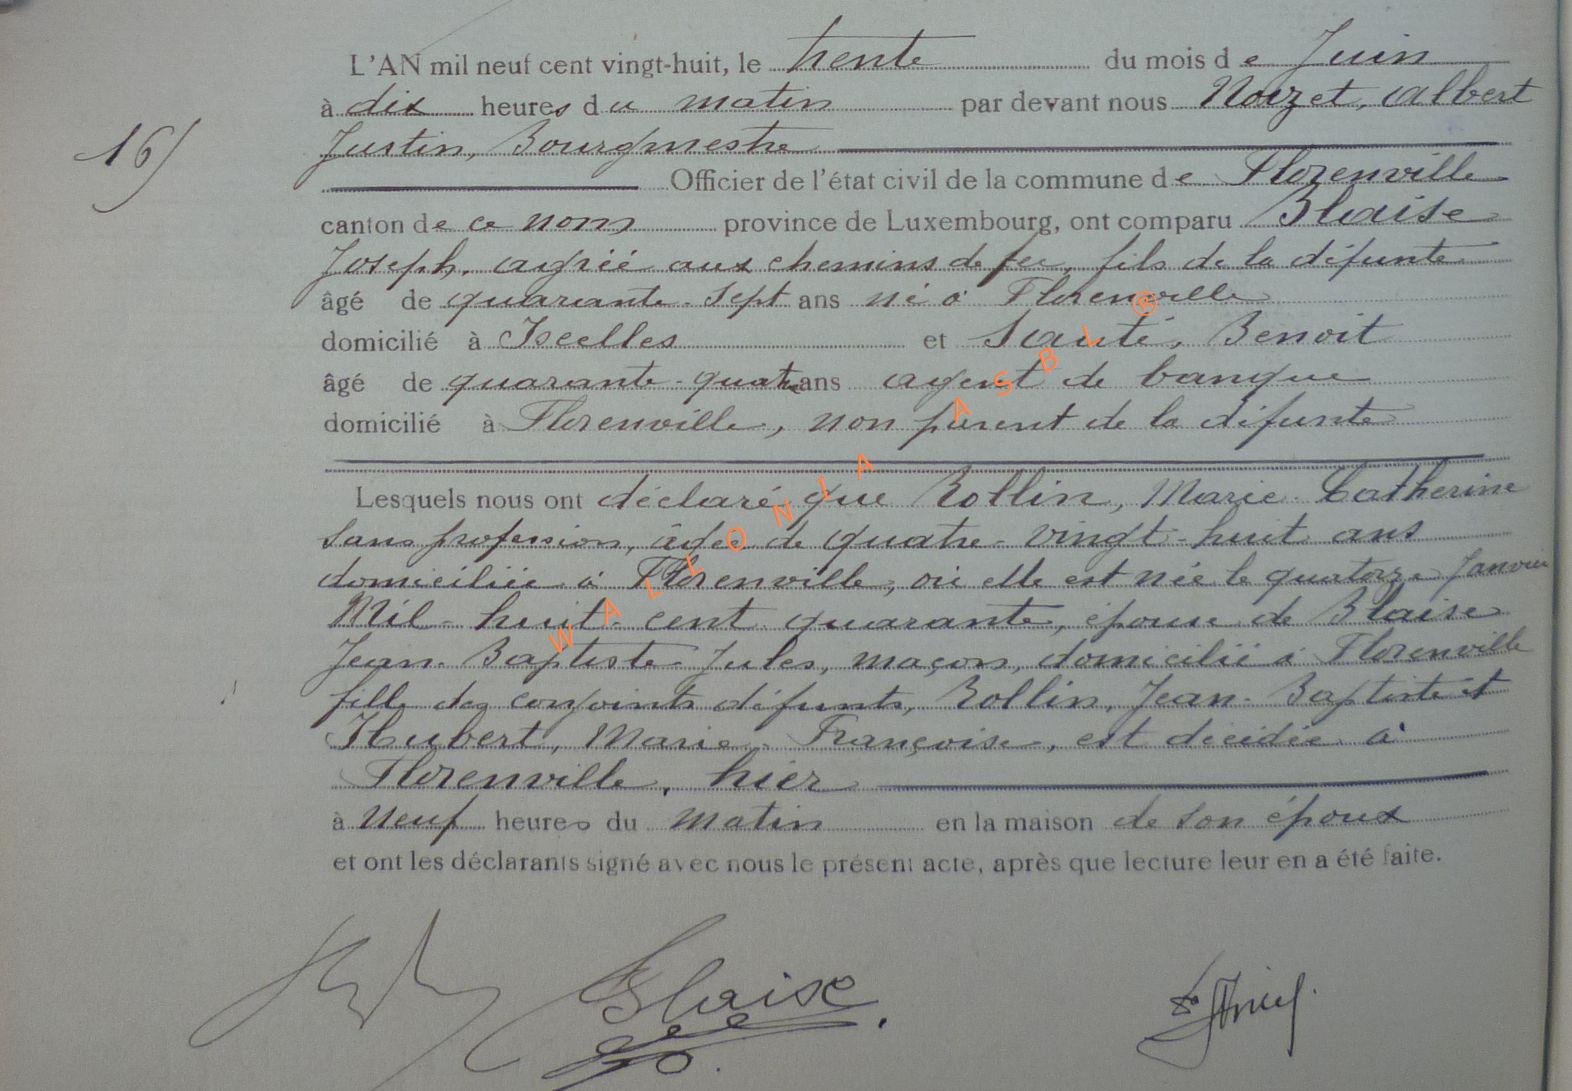 L'AN mil neuf cent vingt-huit, le trente du mois de Juin
à dix heures du matin par devant nous Noizet, Albert
16)
Justin, Bourgmestre
Officier de l'état civil de la commune de Florenville
canton de ce nom province de Luxembourg, ont comparu Blaise
Joseph, agréé aux chemins de fer, fils de la défunte
âgé de quarante-sept ans né à Florenville
domicilié à Ixelles et Sauté, Benoit
âgé de quarante-quatre ans agent de banque
domicilié à Florenville, non parent de la défunte
Lesquels nous ont déclaré que Rollin, Marie-Catherine
sans profession, âgée de quatre-vingt-huit ans
domiciliée à Florenville, où elle est née le quatorze Janvier
Mil-huit-cent quarante, épouse de Blaise
Jean-Baptiste-Jules, maçon, domicilié à Florenville
fille des conjoints défunts, Rollin, Jean-Baptiste et
Hubert, Marie-Françoise, est décédée à
Florenville, hier
à neuf heures du matin en la maison de son époux
et ont les déclarants signé avec nous le présent acte, après que lecture leur en a été faite.
Blaise
WALLONIA ASBL ®